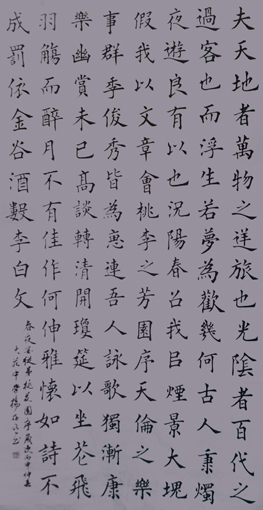 夫天地者萬物之逆旅也光陰者百代之
過客也而浮生若夢為歡幾何古人秉燭
夜遊良有以也況陽春召我㠯煙景大塊
假我以文章會桃李之芳園序天倫之樂
事群季俊秀皆為惠連吾人詠歌獨慚康
樂幽賞未已高談轉清開瓊筵以坐花飛
羽觴而醉月不有佳作何伸雅懷如詩不
成罰依金谷酒數李白文
春夜宴從弟桃花園序歲次丙申仲春